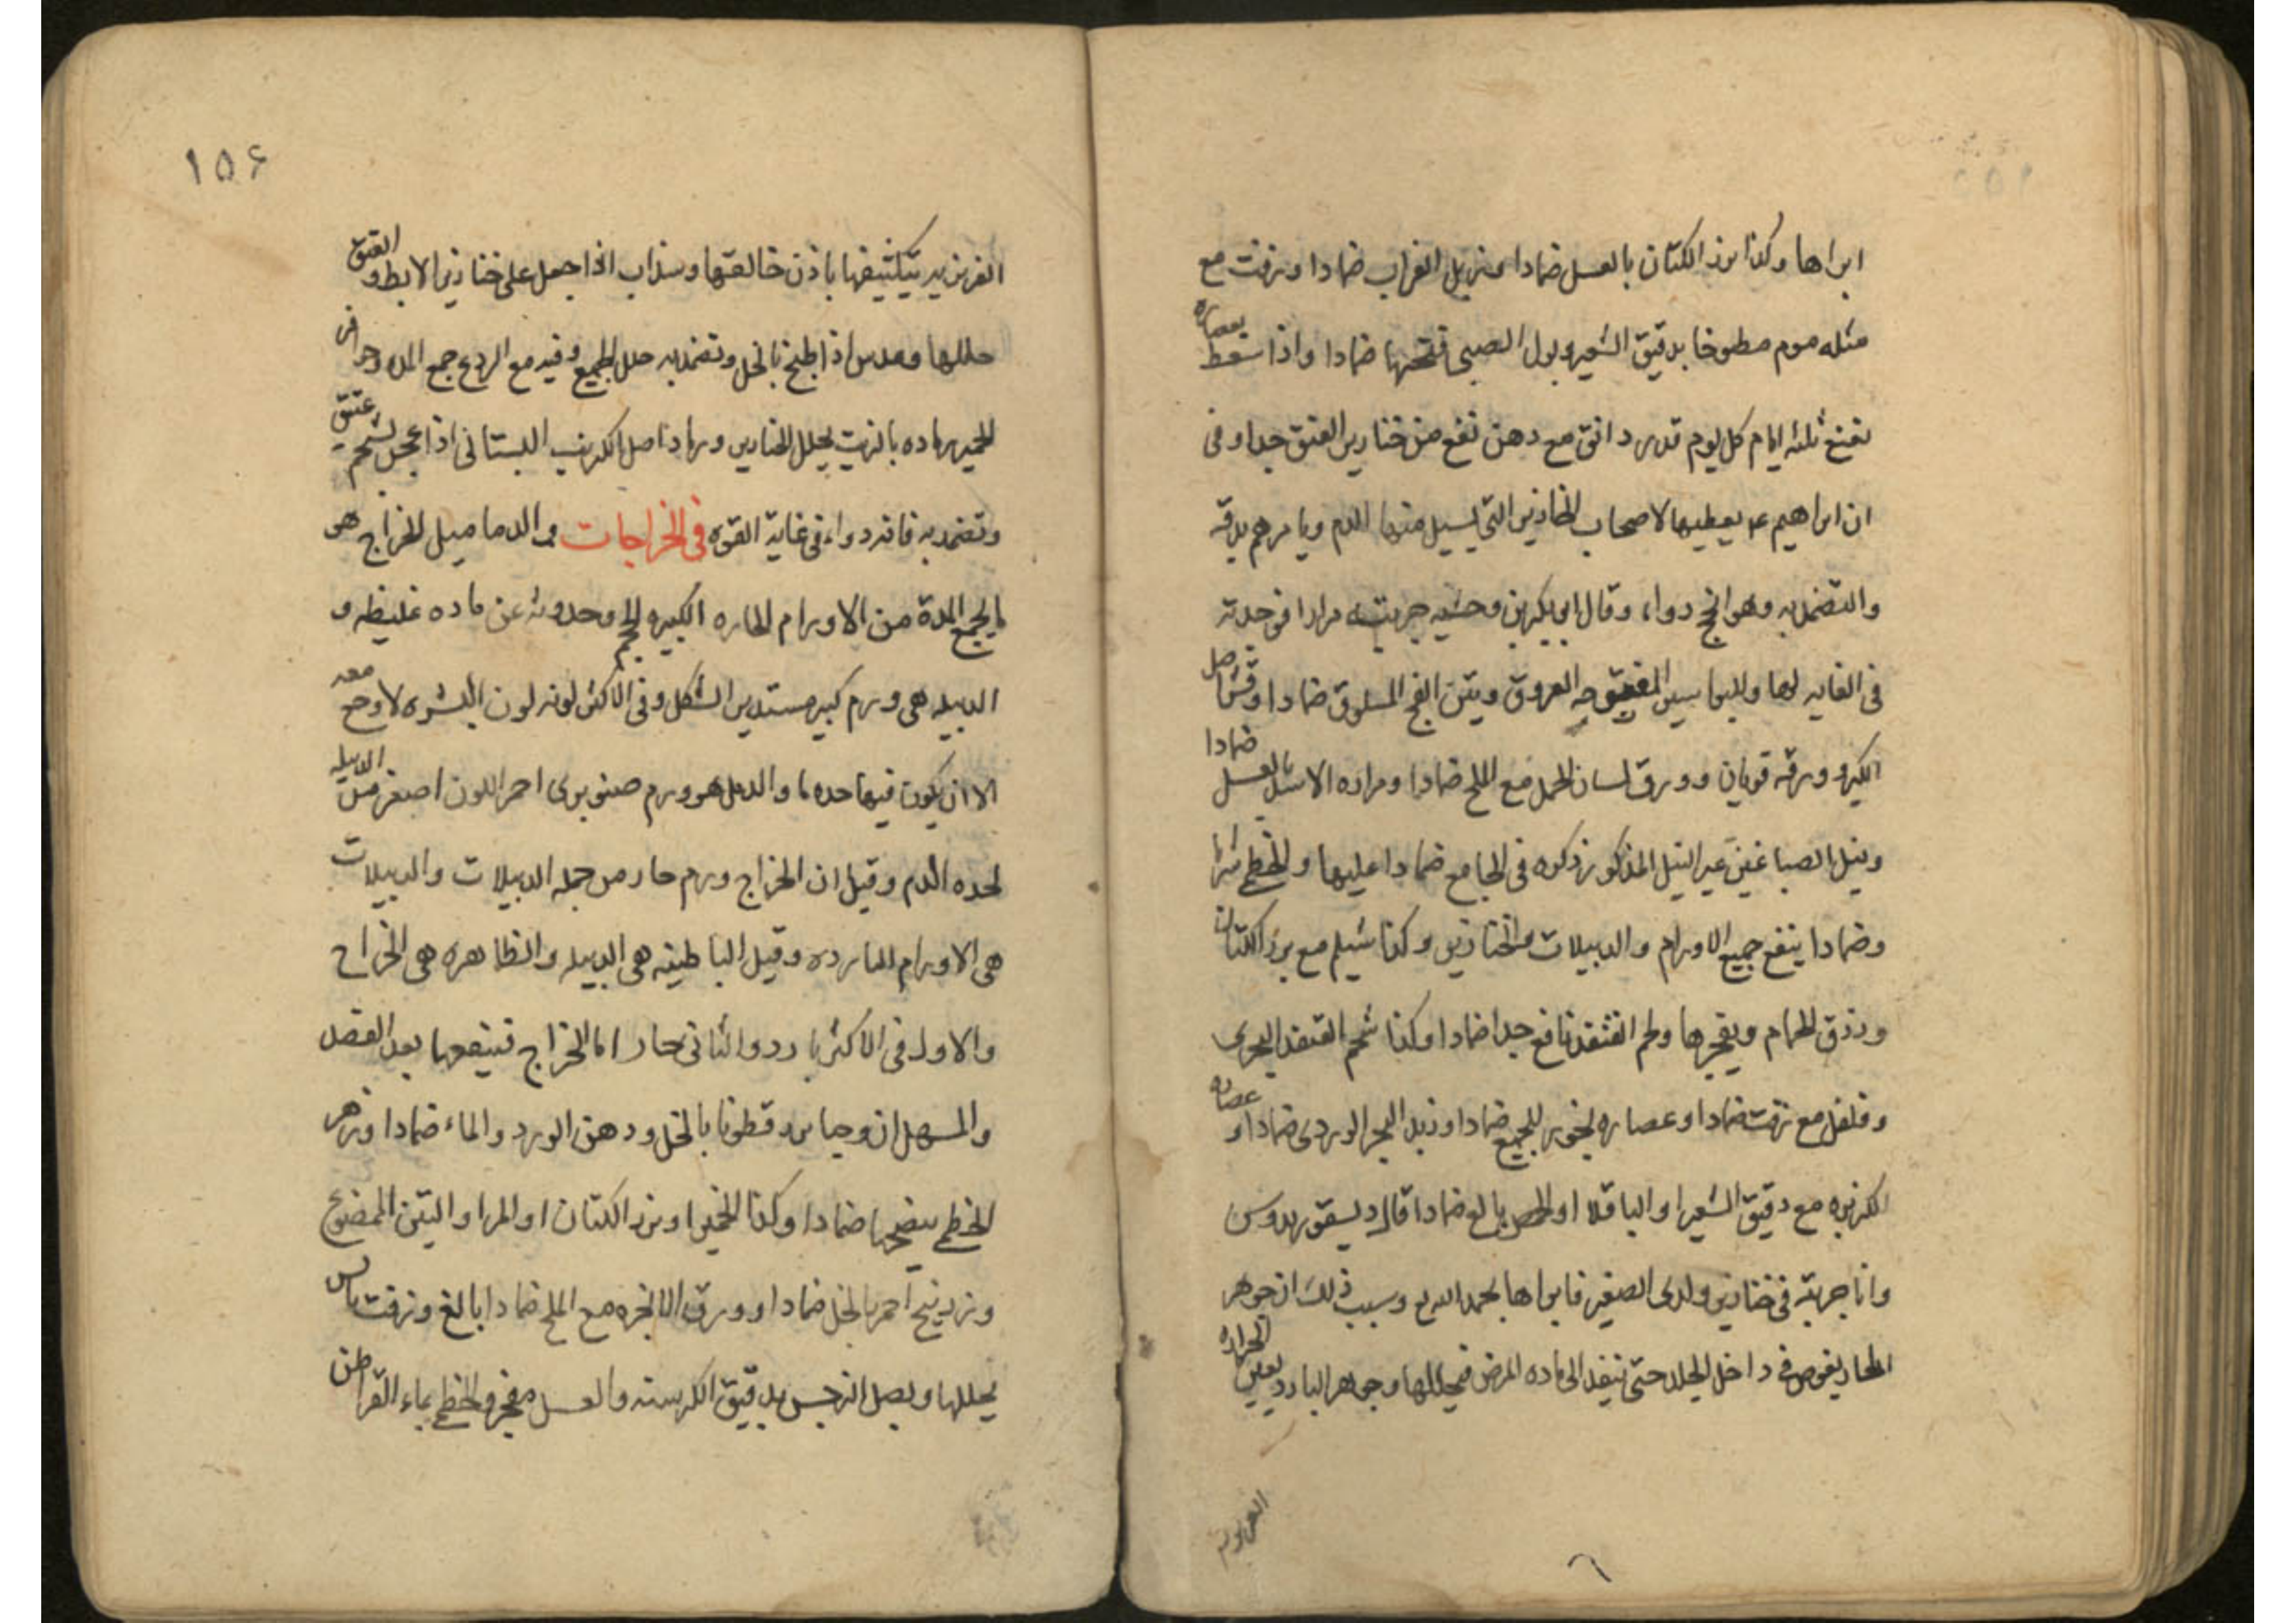 ابراها وكذا بزر الكتان بالعسل ضمادا وزبل الغراب ضمادا وزفت مع
مثله موم مطبوخا بدقيق الشعير وبول الصبي فتحها ضمادا واذا سعط بعصاره
نعنع ثلثه ايام كل يوم قدر دانق مع دهن نفع من خنازير العنق جدا وفى
ان ابراهيم عم يعطيها لاصحاب الخنازير التي يسيل منها الدم ويامرهم بدقه
والتضمد به وهو انجح دواء وقال ابو بكر بن وحشيه جربته مرارا فوجدته
فى الغايه لها وللبواسير المفتوحه العروق وبتن الفج المسلوق ضمادا وقشر اصل
الكبر وورقه قويان وورق لسان الحمل مع الملح ضمادا ومراره الاسد بالعسل ضمادا
ونيل الصباغين غير النيل المذكور ذكوه فى الجامع ضمادا عليها والخطمي شربا
وضمادا ينفع جميع الاورام والدبيلات والخنازير وكذا شيلم مع بزر الكتان
وذرق الحمام ويفجرها ولحم القنفذ نافع جدا ضمادا وكذا شحم القنفذ البحرى
وفلفل مع زفت ضمادا وعصاره للجميع ضمادا وزبد البحر الوردى ضمادا وعصاره
الكزبره مع دقيق الشعير او الباقلا او الحمص بالغ ضمادا قال ديسقوريدوس
وانا جربته فى خنازير ولدى الصغير فابراها بحمد الله وسبب ذلك ان جوهر
الحار يغوص فى داخل الجلد حتى ينفذ الى ماده المرض فيحللها وجوهر البارد يعين الحراره
الغريزيه
١٥٦
الغريزيه بتكثيفها باذن خالقها وسذاب اذا جعل على خنازير الابط والعنق
حللها وعدس اذا طبخ بالخل وتضمد به حلل الجميع وفيه مع الردع جمع المده وحوافر
الحمير رماده بالزيت يحلل الخنازير ورماد اصل الكرنب البستانى اذا عجن بشحم عتيق
وتضمد به فانه دواء فى غاية القوه فى الخراجات والدماميل الخراج هو
ما يجمع المدة من الاورام الحاره الكبيره الحجم وحدوثه عن ماده غليظه و
الدبيله هى ورم كبير مستدير الشكل وفى الاكثر لونه لون البشره لا وجع معه
الا ان يكون فيها حده ما والدمل هو ورم صنوبرى احمر اللون اصغر من الدبيله
لحده الدم وقيل ان الخراج ورم حار من جمله الدبيلات والدبيلات
هى الاورام البارده وقيل الباطنه هى الدبيله والظاهره هى الخراج
والاول فى الاكثر بارد والثانى حار اما الخراج فينفعها بعد الفصد
والمسهل ان وجبا بزر قطونا بالخل ودهن الورد والماء ضمادا وزهر
الخطمي ينضجها ضمادا وكذا الخمير او بزر الكتان او المر او التين الممضوغ
وزرنيخ احمر بالخل ضمادا وورق الانجره مع الملح ضمادا بالغ وزفت يابس
يحللها وبصل النرجس بدقيق الكرسنه والعسل مفجر والخطمي بماء القراطن